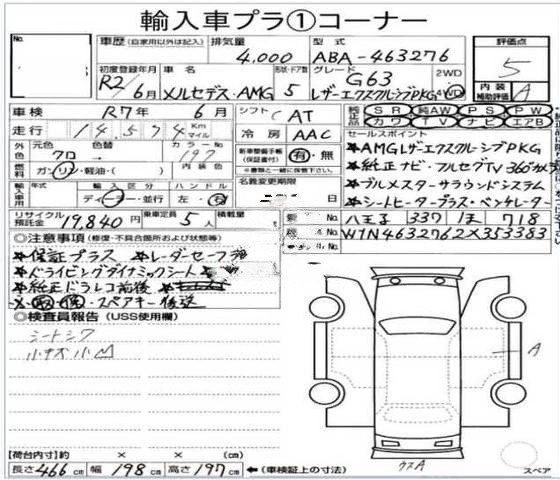 輸入車プラ①コーナー
No.
車歴 (自家用以外は記入)
排気量 4,000
型式 ABA-463276
評価点 5
初度登録年月 R2年6月
車名 メルセデス・AMG
形状・ドア数 5
グレード G63 レザーエクスクルーシブPKG
2WD
4WD
内装補助評価 A
車検 R7年 6月
シフト AT
純正品 SR 純AW PS PW
カワ TV ナビ エアB
走行 14,574 Km マイル
冷房 AAC
セールスポイント
外色 元色 クロ 色替
カラーNo. 197
内装色
新車整備手帳(保証書付) 有・無
※書類と一緒に保管下さい。
★AMGレザエクスクルーシブPKG
燃料 ガソリン・軽油・( )
★純正ナビ・フルセグTV 360°カメラ
輸入車用 年式 輸入区分 ディーラー・並行 ハンドル 左・右
名義変更期限 日
★ブルメスターサラウンドシステム
リサイクル預託金 19,840円
乗車定員 5人
積載量
★シートヒータープラス・ベンチレーター
八王子 339 ノ 718
◎注意事項 (修復・不具合箇所および状態等)
W1N4632762X353383
★保証プラス ★レーダーセーフ
★ドライビングダイナミックシート
★純正ドラレコ前後
取 保 ・スペアキー後送
◎検査員報告 (USS使用欄)
シートシワ
小キズ 小凹
A
クスA
【荷台内寸】約 × × (cm)
長さ466cm 幅198cm 高さ197cm ←(車検証上の寸法)
スペア